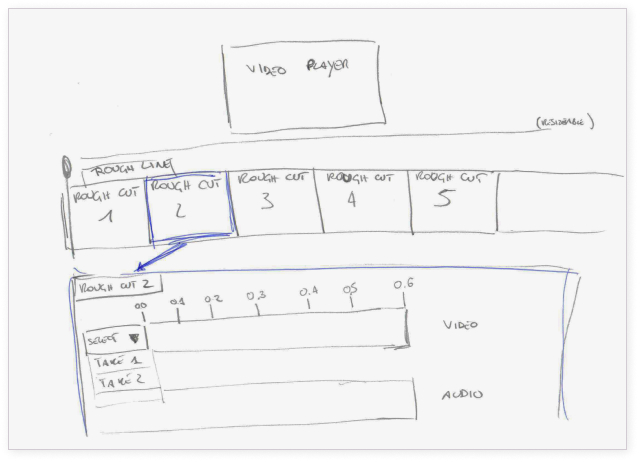 VIDEO PLAYER
(RISIZEABLE)
ROUGH LINE
ROUGH CUT
1
ROUGH CUT
2
ROUGH CUT
3
ROUGH CUT
4
ROUGH CUT
5
ROUGH CUT 2
0.0 0.1 0.2 0.3 0.4 0.5 0.6
SELECT ▼
VIDEO
TAKE 1
TAKE 2
AUDIO